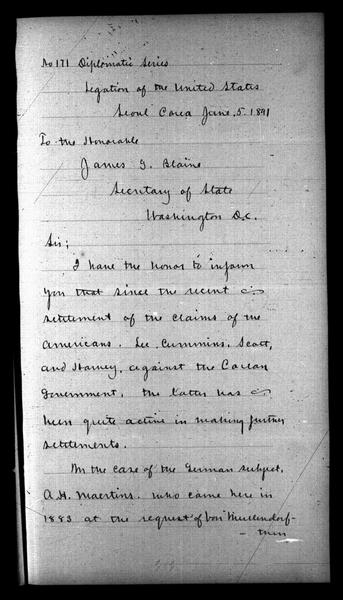 No 171 Diplomatic Series
Legation of the United States
Seoul Corea June. 5. 1891
To the Honorable
James G. Blaine
Secretary of State
Washington D.C.
Sir;
I have the honor to inform
you that since the recent
settlement of the claims of
Americans. Lee, Cummins, Scott,
and Harvey, against the Corean
Government, the latter has
been quite active in making further
settlements.
In the case of the German subject,
A.H. Maertins. who came here in
1883 at the request of Von Muellendorf-
- then